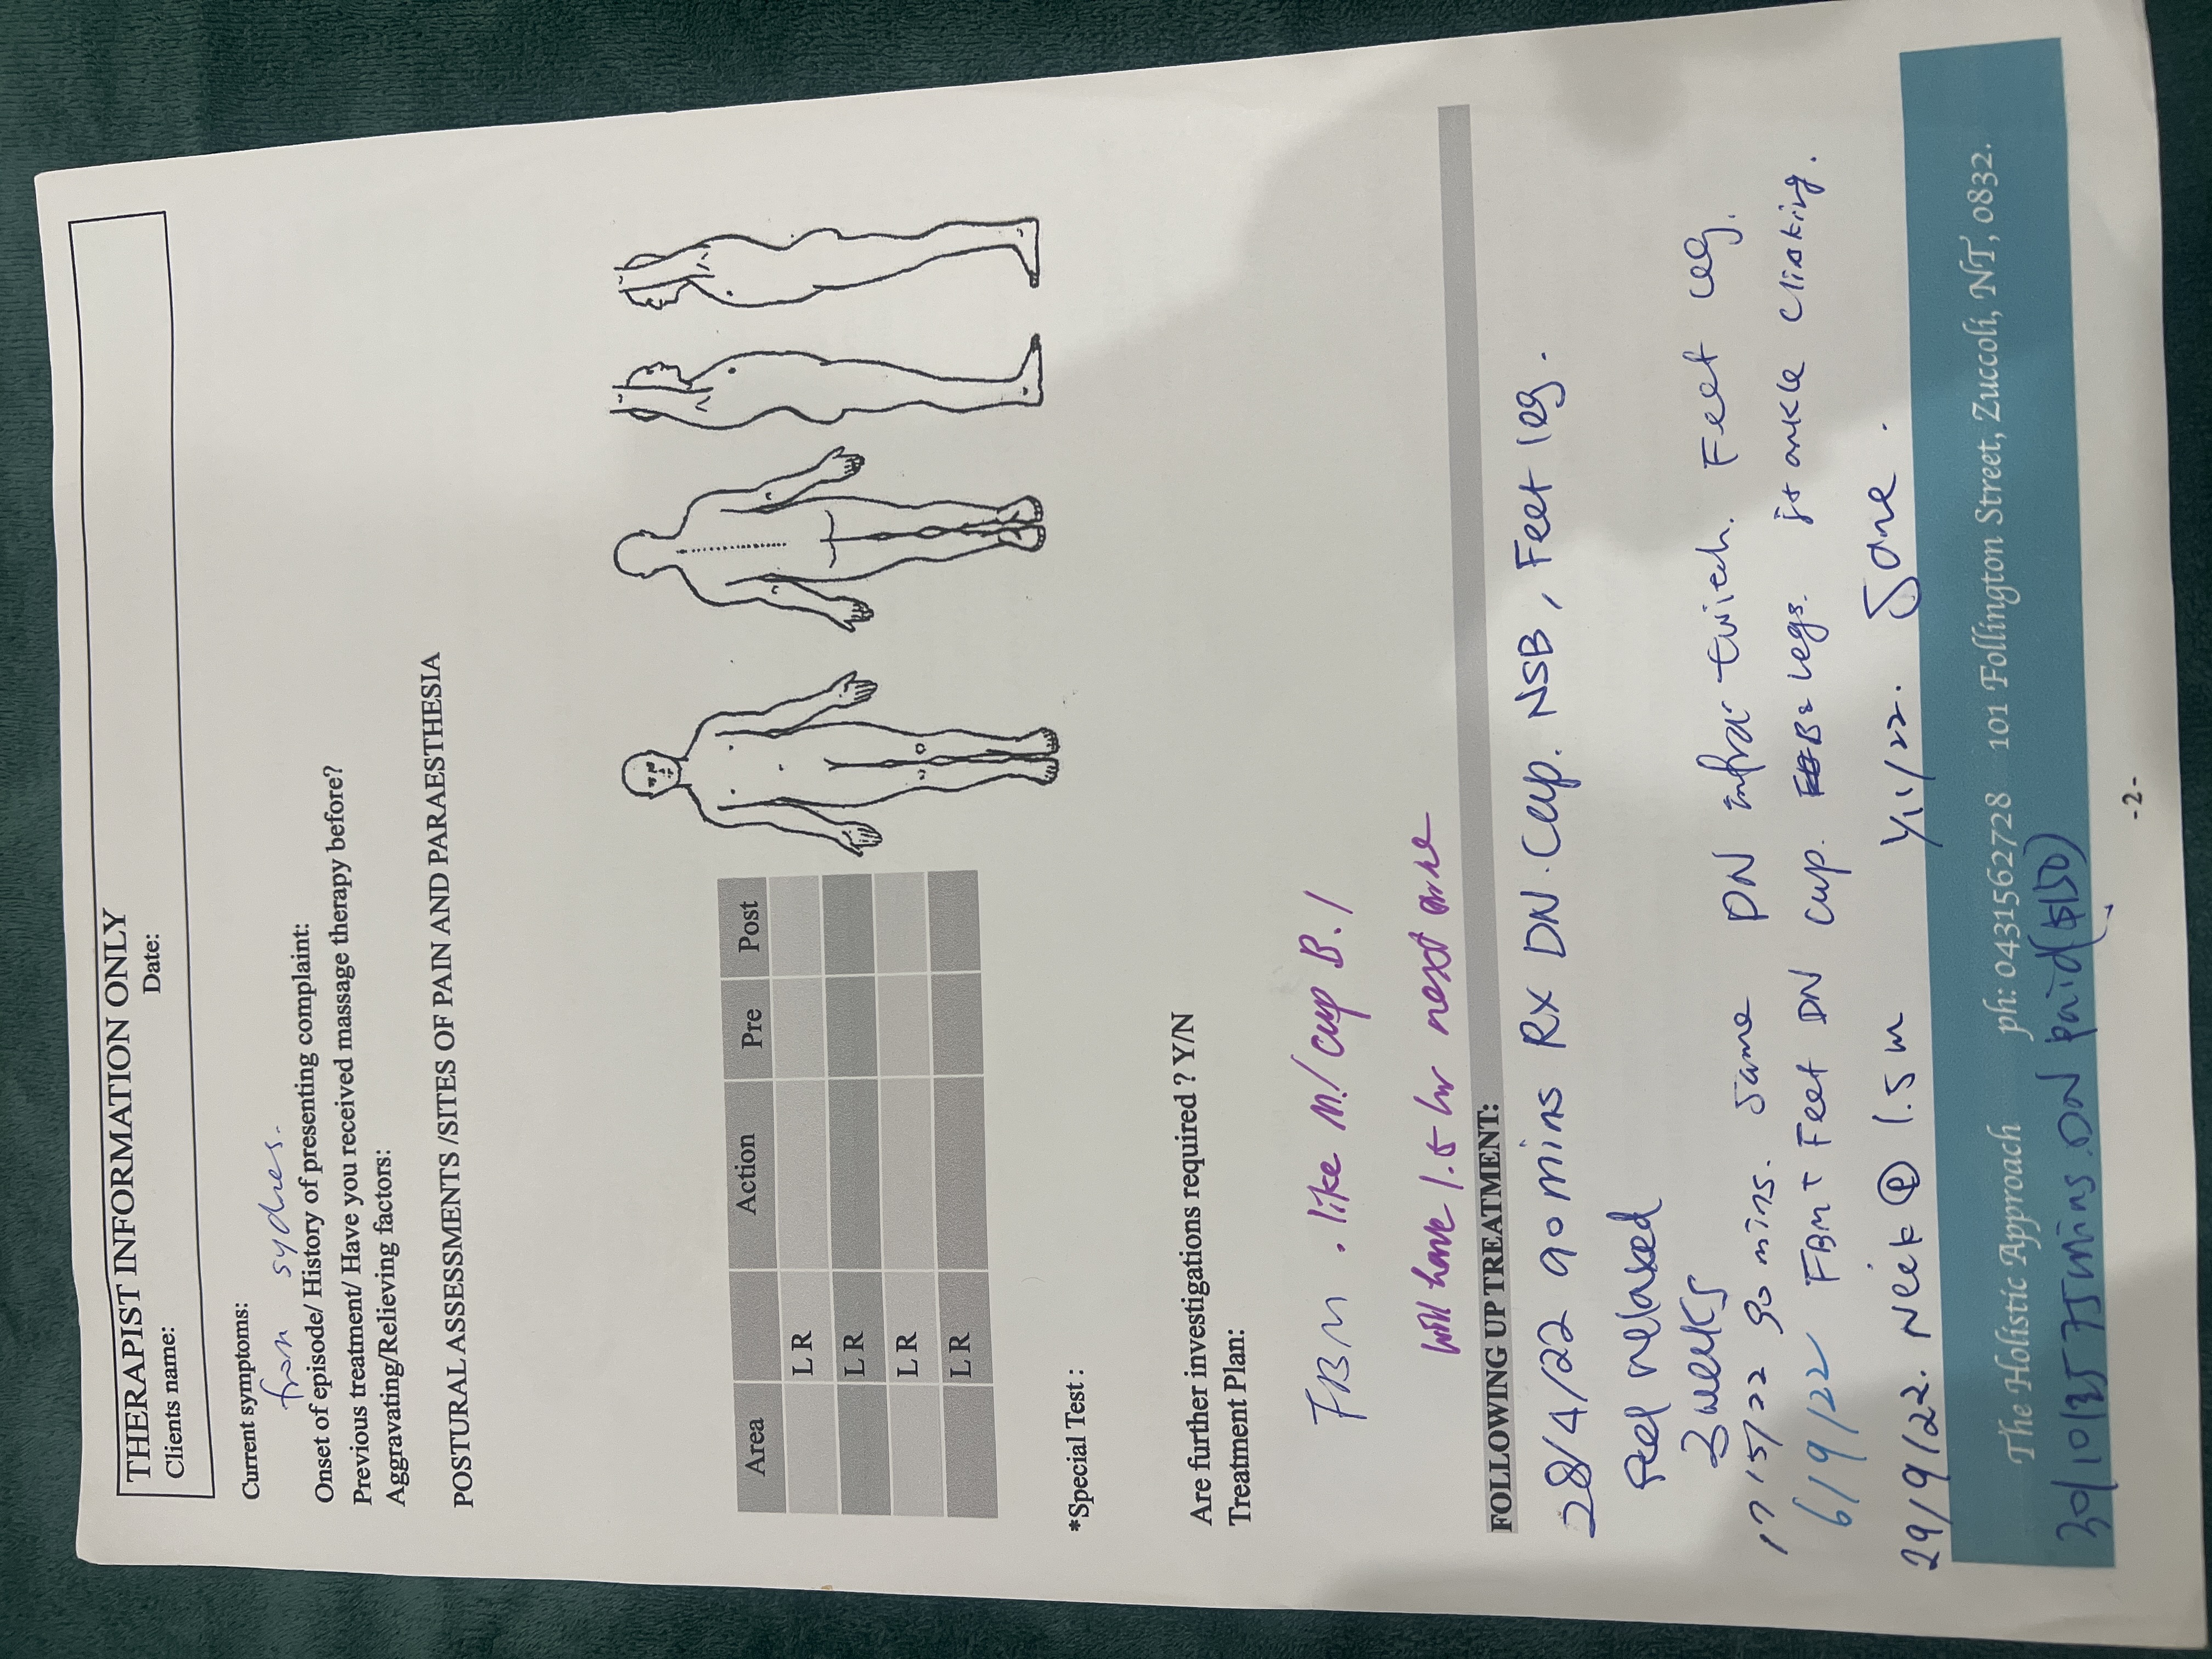 THERAPIST INFORMATION ONLY
Clients name: Date:
Current symptoms:
from
Onset of episode/ History of presenting complaint:
Previous treatment/ Have you received massage therapy before?
Aggravating/Relieving factors:
POSTURAL ASSESSMENTS /SITES OF PAIN AND PARAESTHESIA
Area Action Pre Post
L R
L R
L R
L R
*Special Test :
Are further investigations required ? Y/N
Treatment Plan:
FBM . like M! cup B. !
Will have 1.5 hr next one
FOLLOWING UP TREATMENT:
28/4/22 90 mins RX DN. Cup. NSB, Feet leg.
Feel relaxed
3 weeks
17/5/22 90 mins. Same DN infra twitch. Feet leg.
6/9/22 FBM + Feet DN cup. legs. ankle clicking.
29/9/22. Neck @ 1.5 hr 1/11/22. Same.
The Holistic Approach ph: 0431562728 101 Follington Street, Zuccoli, NT, 0832.
30/10/25 75mins. DN paid ($150)
-2-